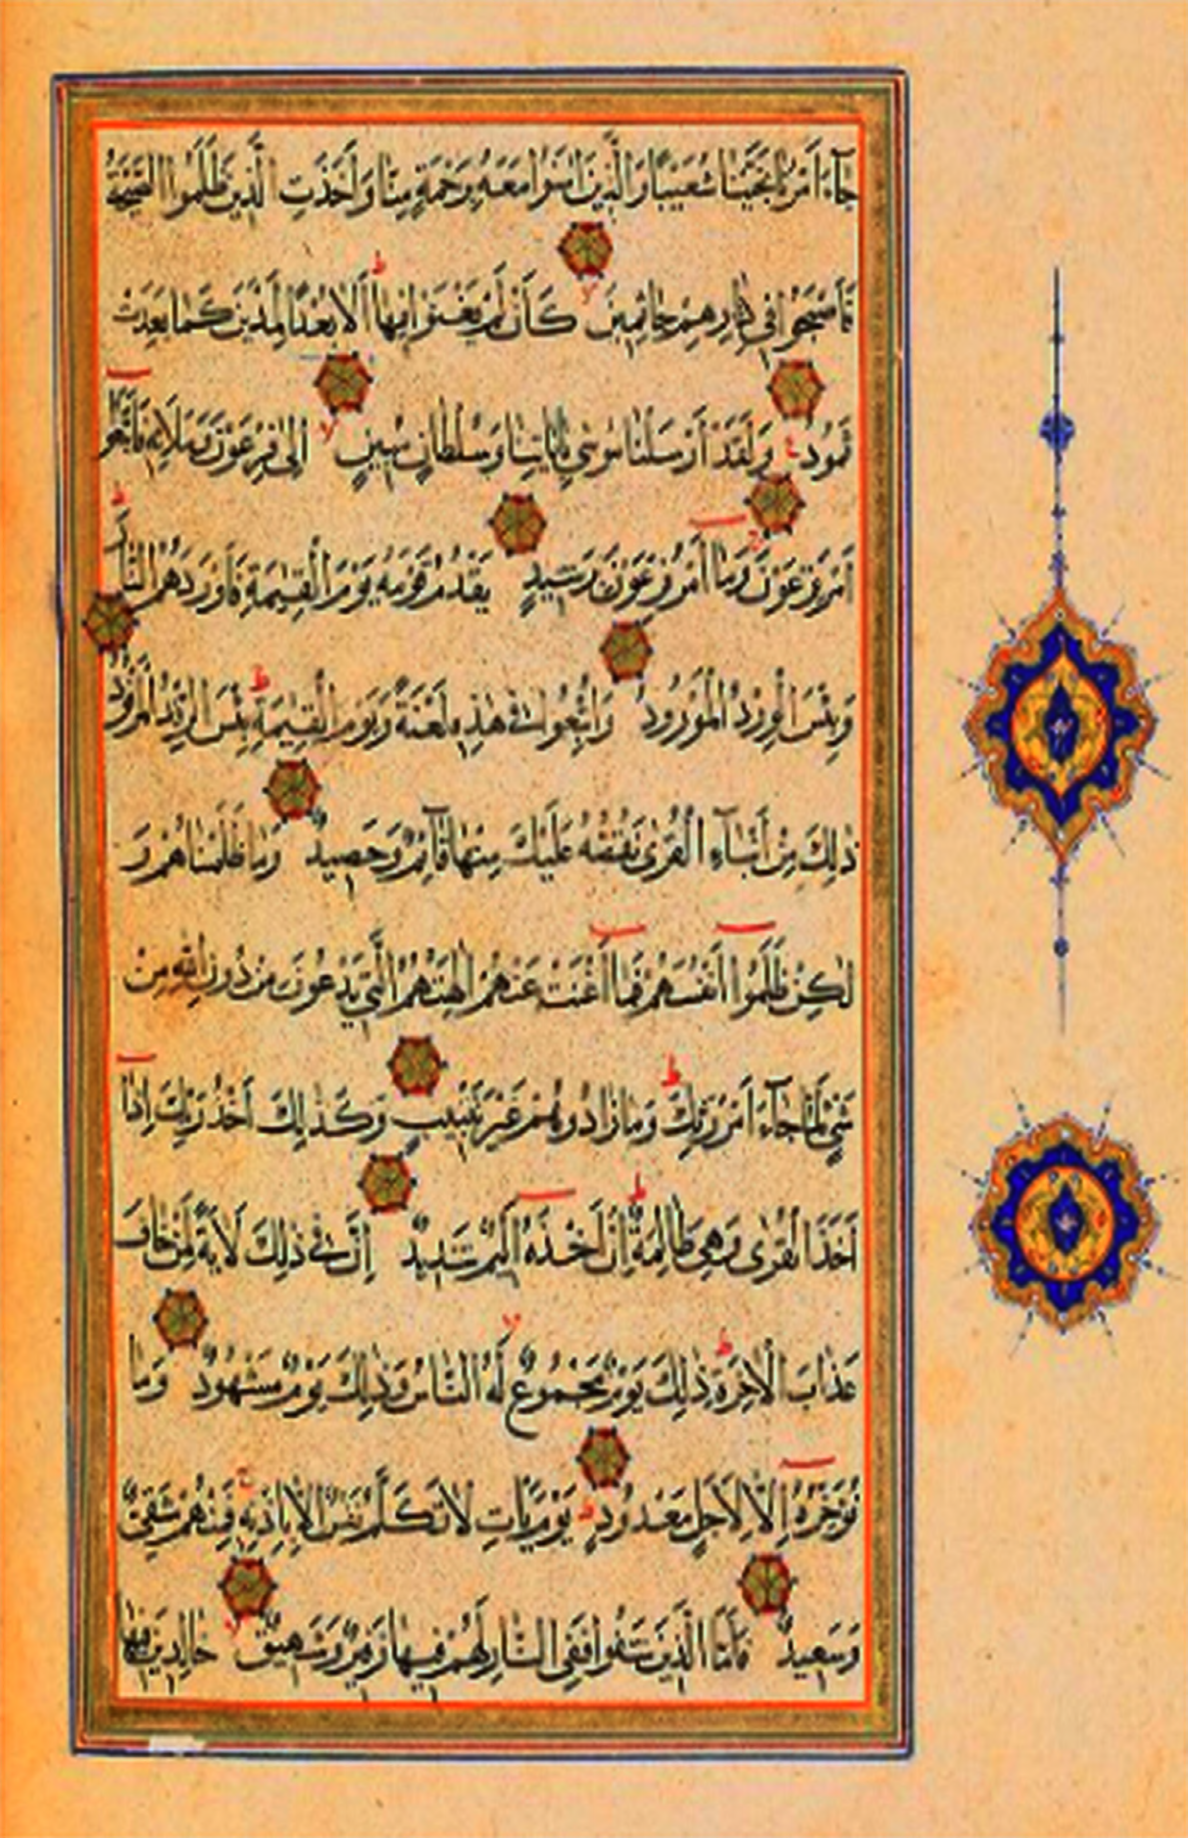 جَآءَ اَمْرُنَا نَجَّيْنَا شُعَيْبًا وَالَّذِينَ اٰمَنُوا مَعَهُ بِرَحْمَةٍ مِنَّا وَاَخَذَتِ الَّذِينَ ظَلَمُوا الصَّيْحَةُ
فَاَصْبَحُوا فِي دِيَارِهِمْ جَاثِمِينَ كَاَنْ لَمْ يَغْنَوْا فِيهَا اَلَا بُعْدًا لِمَدْيَنَ كَمَا بَعِدَتْ
ثَمُودُ وَلَقَدْ اَرْسَلْنَا مُوسٰى بِاٰيَاتِنَا وَسُلْطَانٍ مُبِينٍ اِلٰى فِرْعَوْنَ وَمَلَائِهِ فَاتَّبَعُوا
اَمْرَ فِرْعَوْنَ وَمَا اَمْرُ فِرْعَوْنَ بِرَشِيدٍ يَقْدُمُ قَوْمَهُ يَوْمَ الْقِيٰمَةِ فَاَوْرَدَهُمُ النَّارَ
وَبِئْسَ الْوِرْدُ الْمَوْرُودُ وَاُتْبِعُوا فِي هٰذِهِ لَعْنَةً وَيَوْمَ الْقِيٰمَةِ بِئْسَ الرِّفْدُ الْمَرْفُودُ
ذٰلِكَ مِنْ اَنْبَآءِ الْقُرٰى نَقُصُّهُ عَلَيْكَ مِنْهَا قَآئِمٌ وَحَصِيدٌ وَمَا ظَلَمْنَاهُمْ وَ
لٰكِنْ ظَلَمُوا اَنْفُسَهُمْ فَمَا اَغْنَتْ عَنْهُمْ اٰلِهَتُهُمُ الَّتِي يَدْعُونَ مِنْ دُونِ اللّٰهِ مِنْ
شَيْءٍ لَمَّا جَآءَ اَمْرُ رَبِّكَ وَمَا زَادُوهُمْ غَيْرَ تَتْبِيبٍ وَكَذٰلِكَ اَخْذُ رَبِّكَ اِذَا
اَخَذَ الْقُرٰى وَهِيَ ظَالِمَةٌ اِنَّ اَخْذَهُ اَلِيمٌ شَدِيدٌ اِنَّ فِي ذٰلِكَ لَاٰيَةً لِمَنْ خَافَ
عَذَابَ الْاٰخِرَةِ ذٰلِكَ يَوْمٌ مَجْمُوعٌ لَهُ النَّاسُ وَذٰلِكَ يَوْمٌ مَشْهُودٌ وَمَا
نُؤَخِّرُهُ اِلَّا لِاَجَلٍ مَعْدُودٍ يَوْمَ يَأْتِ لَا تَكَلَّمُ نَفْسٌ اِلَّا بِاِذْنِهِ فَمِنْهُمْ شَقِيٌّ
وَسَعِيدٌ فَاَمَّا الَّذِينَ شَقُوا فَفِي النَّارِ لَهُمْ فِيهَا زَفِيرٌ وَشَهِيقٌ خَالِدِينَ فِيهَا